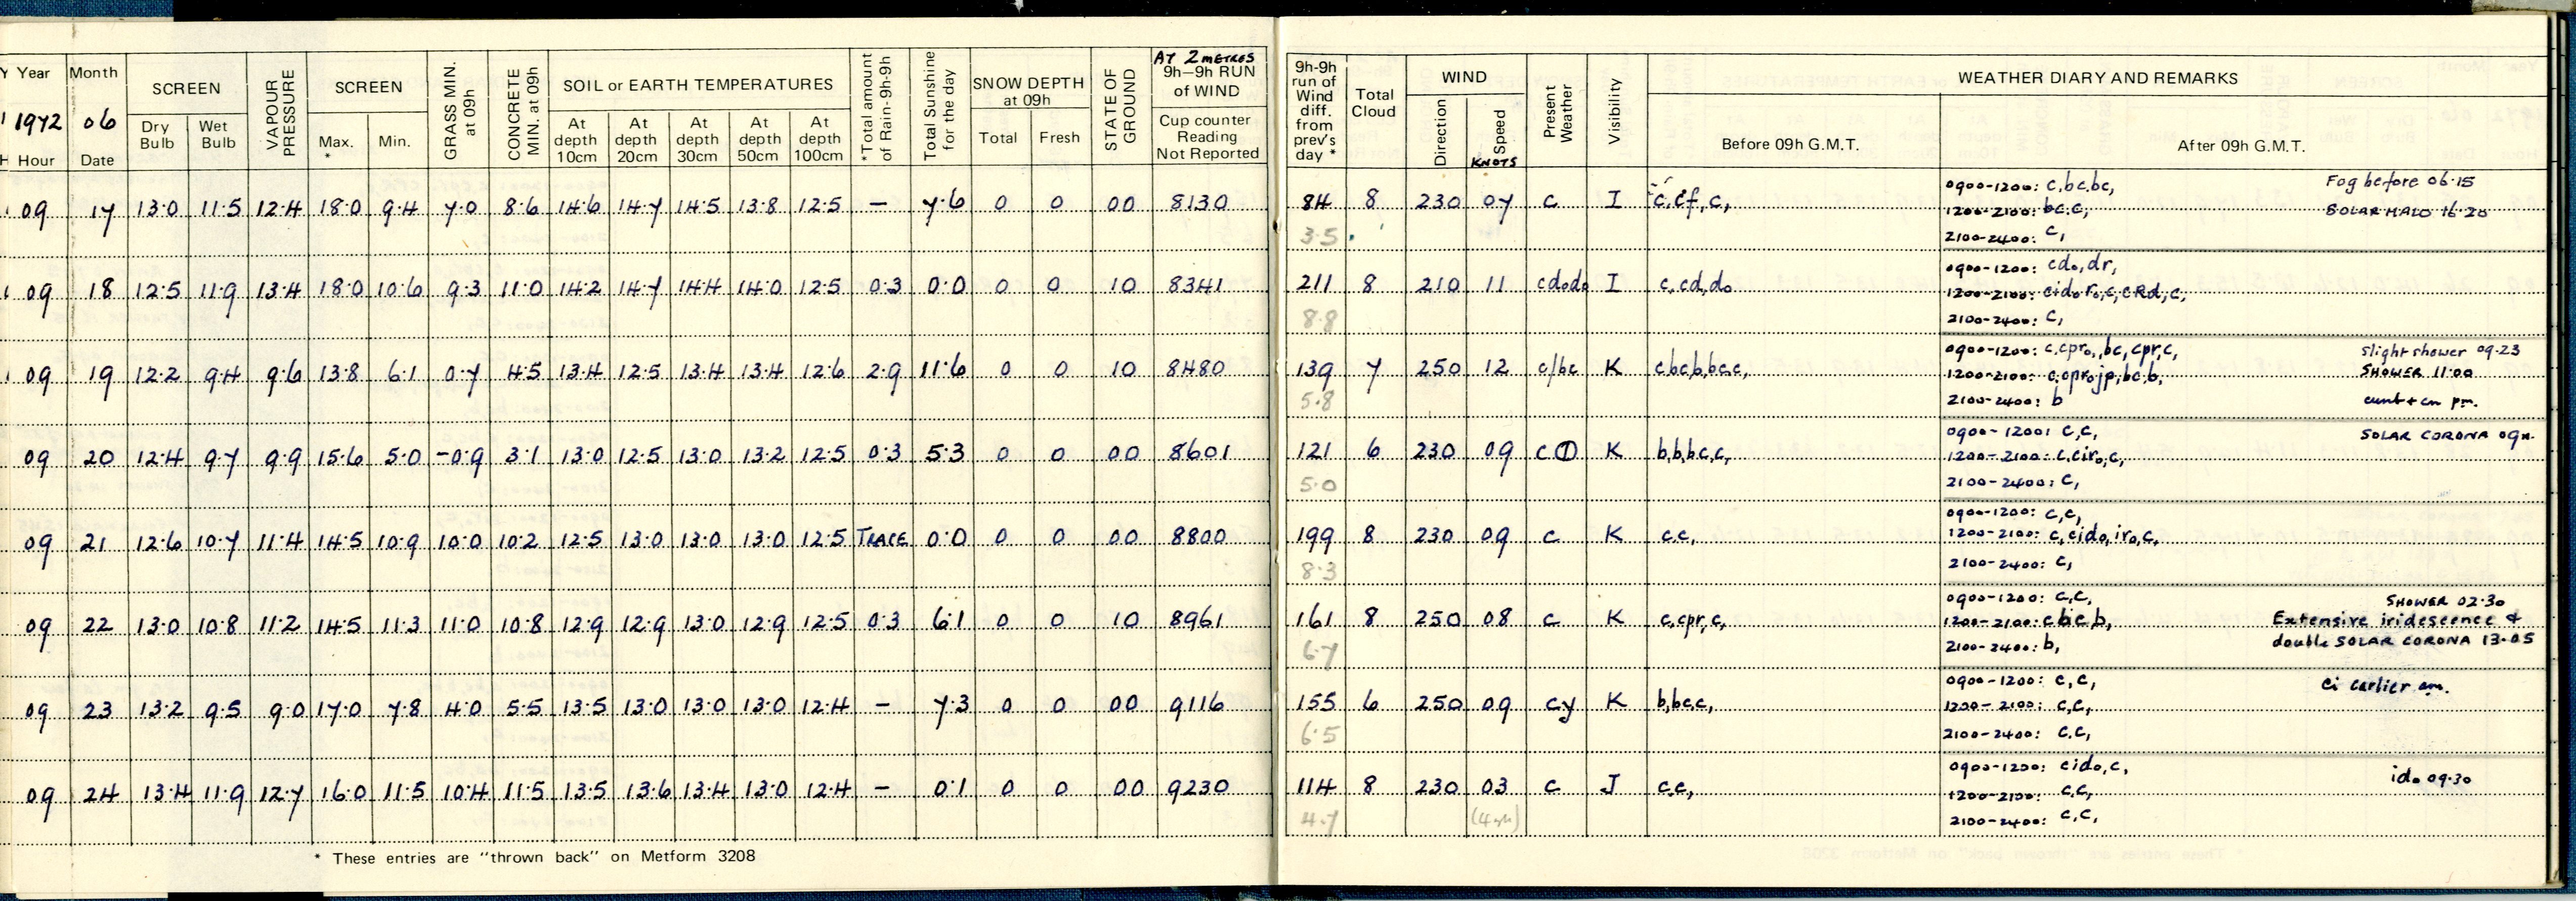 Y Year Month SCREEN VAPOUR PRESSURE SCREEN GRASS MIN. at 09h CONCRETE MIN. at 09h SOIL or EARTH TEMPERATURES *Total amount of Rain-9h-9h Total Sunshine for the day SNOW DEPTH at 09h STATE OF GROUND AT 2 METRES 9h-9h RUN of WIND
1972 06 Dry Bulb Wet Bulb Max. * Min. At depth 10cm At depth 20cm At depth 30cm At depth 50cm At depth 100cm Total Fresh Cup counter Reading Not Reported
H Hour Date
09 17 13.0 11.5 12.4 18.0 9.4 7.0 8.6 14.6 14.7 14.5 13.8 12.5 - 7.6 0 0 00 8130
09 18 12.5 11.9 13.4 18.0 10.6 9.3 11.0 14.2 14.7 14.4 14.0 12.5 0.3 0.0 0 0 10 8341
09 19 12.2 9.4 9.6 13.8 6.1 0.7 4.5 13.4 12.5 13.4 13.4 12.6 2.9 11.6 0 0 10 8480
09 20 12.4 9.7 9.9 15.6 5.0 -0.9 3.1 13.0 12.5 13.0 13.2 12.5 0.3 5.3 0 0 00 8601
09 21 12.6 10.7 11.4 14.5 10.9 10.0 10.2 12.5 13.0 13.0 13.0 12.5 TRACE 0.0 0 0 00 8800
09 22 13.0 10.8 11.2 14.5 11.3 11.0 10.8 12.9 12.9 13.0 12.9 12.5 0.3 6.1 0 0 10 8961
09 23 13.2 9.5 9.0 17.0 7.8 4.0 5.5 13.5 13.0 13.0 13.0 12.4 - 7.3 0 0 00 9116
09 24 13.4 11.9 12.7 16.0 11.5 10.4 11.5 13.5 13.6 13.4 13.0 12.4 - 0.1 0 0 00 9230
* These entries are "thrown back" on Metform 3208
9h-9h run of Wind diff. from prev's day * Total Cloud WIND Present Weather Visibility WEATHER DIARY AND REMARKS
Direction Speed KNOTS Before 09h G.M.T. After 09h G.M.T.
84 8 230 07 c I c,cf,c, 0900-1200: c,bc,bc, Fog before 06.15
1200-2100: bc,c, SOLAR HALO 16.20
3.5 2100-2400: c,
211 8 210 11 cdodo I c,cd,do 0900-1200: cdo,dr,
1200-2100: cido ro,c,cRd,c,
8.8 2100-2400: c,
139 7 250 12 c/bc K c,bc,b,bc,c, 0900-1200: c,cpro,bc,cpr,c, slight shower 09.23
1200-2100: c,cprojp,bc,b, SHOWER 11.00
5.8 2100-2400: b pm.
121 6 230 09 c⦶ K b,b,bc,c, 0900-1200: c,c, SOLAR CORONA
1200-2100: c,ciro,c,
5.0 2100-2400: c,
199 8 230 09 c K c,c, 0900-1200: c,c,
1200-2100: c,cido,iro,c,
8.3 2100-2400: c,
161 8 250 08 c K c,cpr,c, 0900-1200: c,c, SHOWER 02.30
1200-2100: c,bc,b, Extensive iridescence &
6.7 2100-2400: b, double SOLAR CORONA 13.05
155 6 250 09 cy K b,bc,c, 0900-1200: c,c, Ci earlier am.
1200-2100: c,c,
6.5 2100-2400: c,c,
114 8 230 03 c J c,c, 0900-1200: cido,c, ido 09.30
1200-2100: c,c,
4.7 2100-2400: c,c,